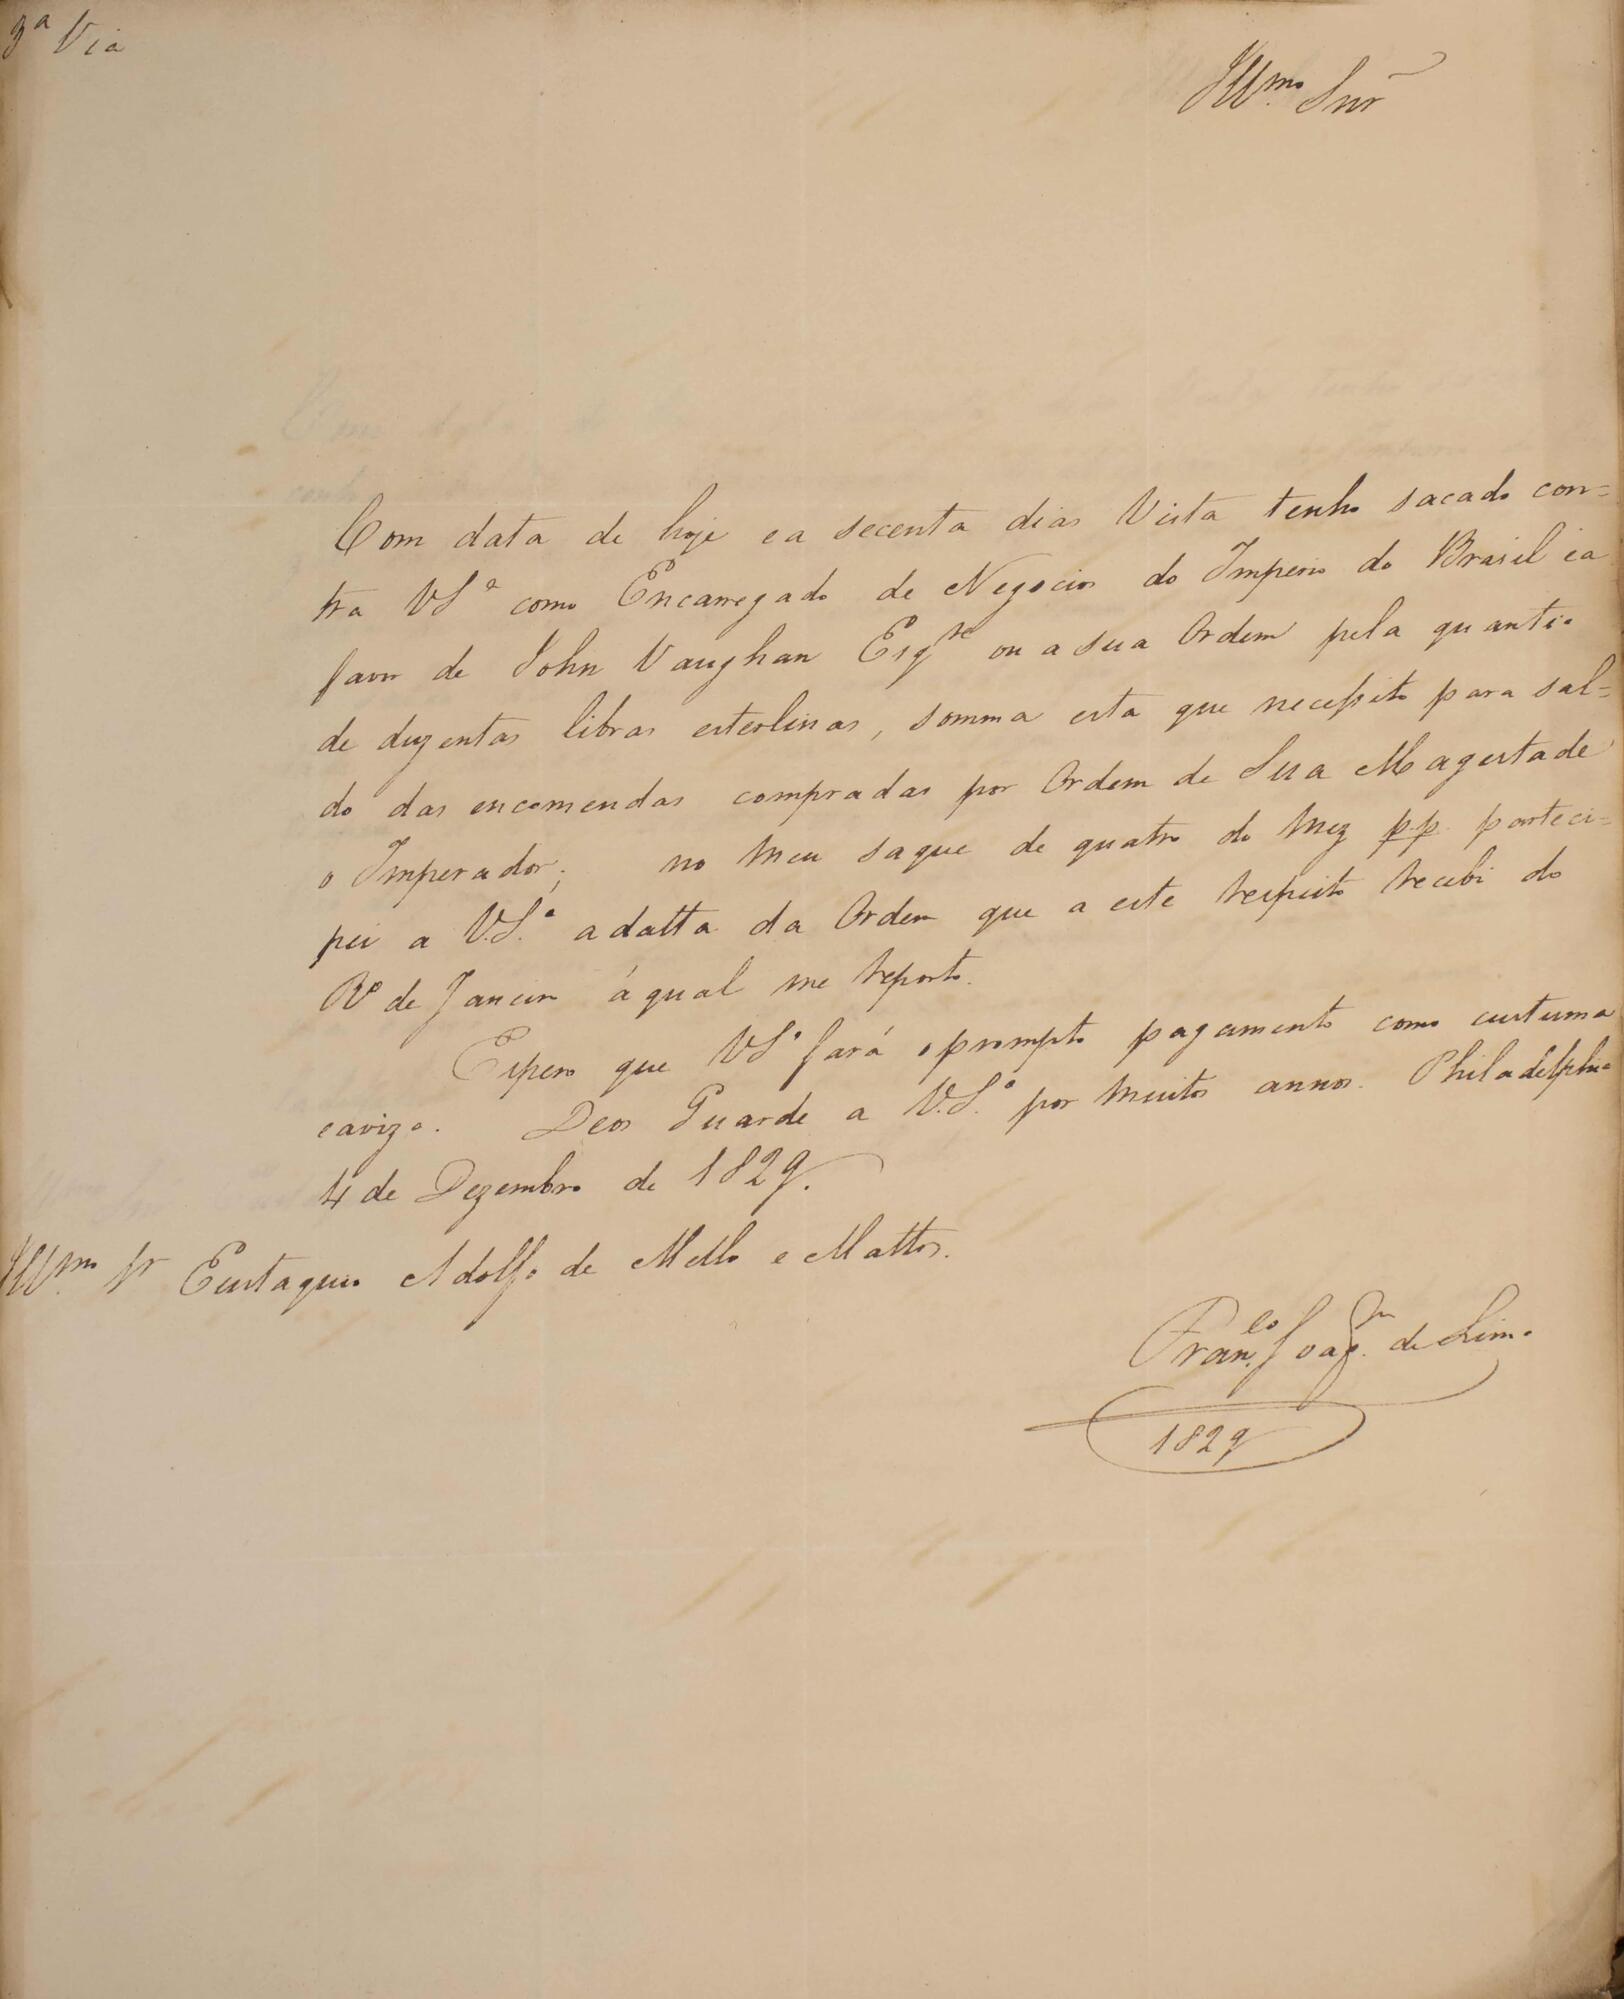 3ª Via
Illmo. Snr
Com data de hoje e a secenta dias Vista tenho sacado con=
tra VSª como Encarregado de Negocios do Imperio do Brasil e a
favor de John Vaughan Esqre ou a sua Ordem pela quantia
de duzentas libras esterlinas, somma esta que necessito para sal=
do das encomendas compradas por Ordem de Sua Magestade
o Imperador; no meu saque de quatro do mez p.p. parteci=
pei a V.S.ª a datta da Ordem que a este respeito recebi do
Rº de Janeiro á qual me reporto.
Espero que VSª fará o prompto pagamento como custuma
e avizo. Deos Guarde a V.S.ª por muitos annos. Philadelphia
4 de Dezembro de 1829.
Illmo. Sr Eustaquio Adolfo de Mello e Mattos.
Franco. Joaqm. de Lima
1829